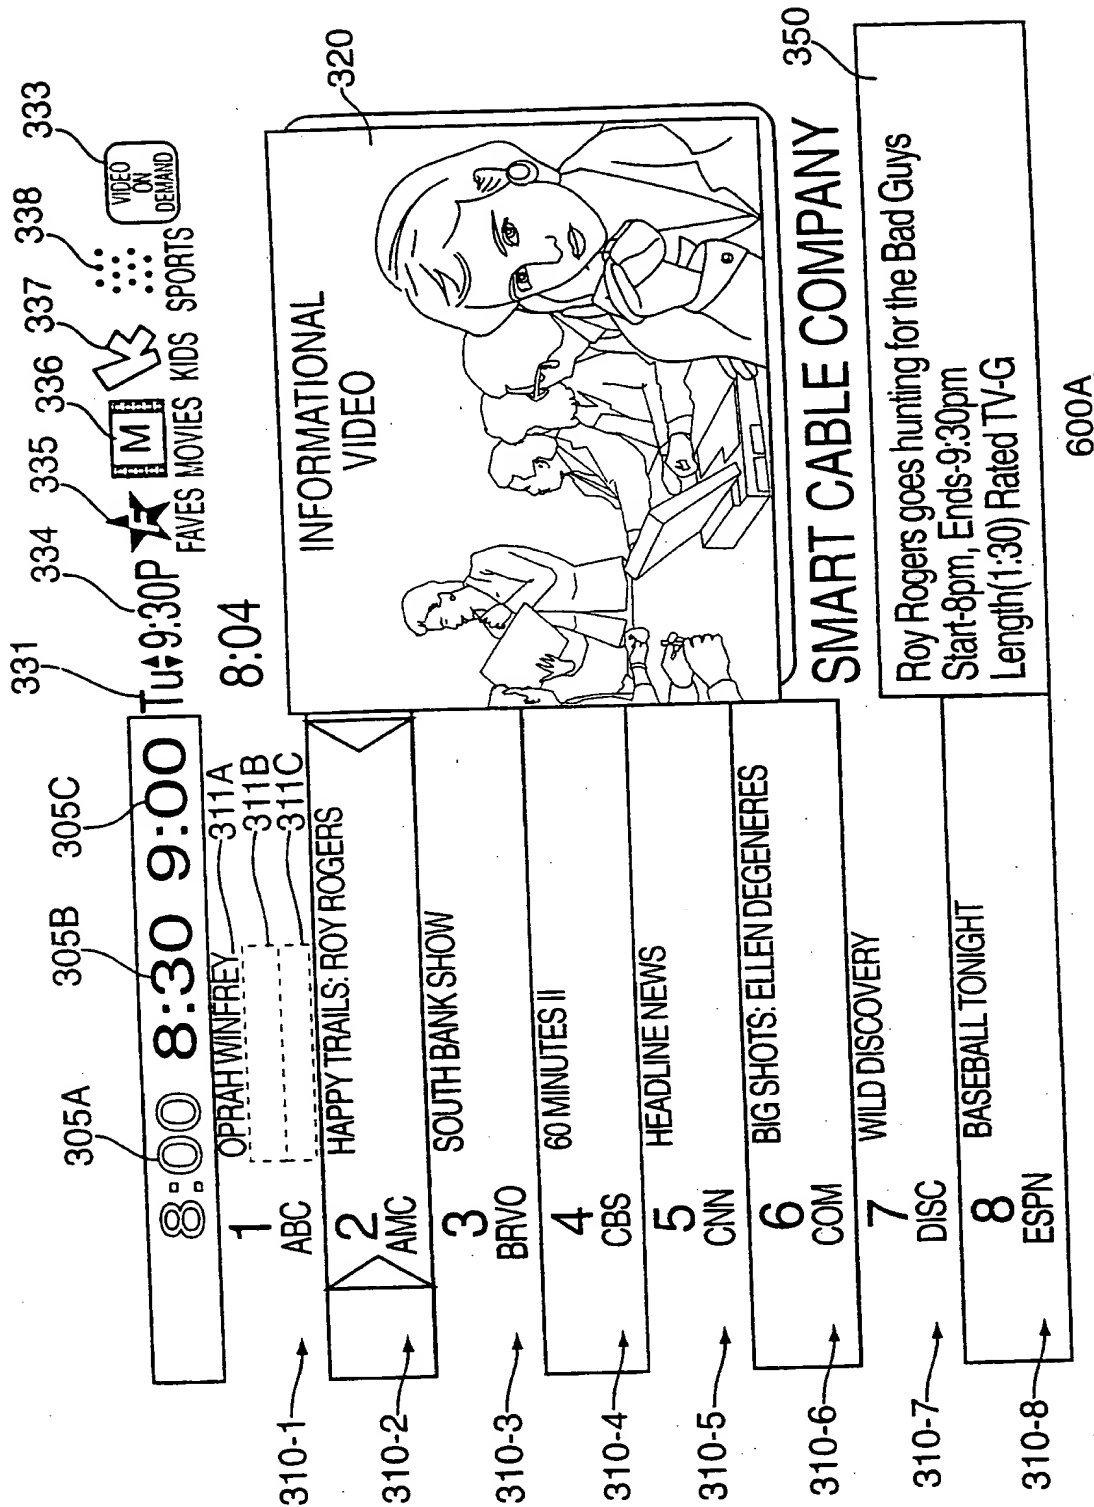 305A
305B
305C
331
334
335
336
337
338
333
8:00 8:30 9:00
Tu 9:30P
F
M
VIDEO
ON
DEMAND
FAVES MOVIES KIDS SPORTS
8:04
310-1
1
ABC
OPRAH WINFREY
311A
311B
311C
310-2
2
AMC
HAPPY TRAILS: ROY ROGERS
310-3
3
BRVO
SOUTH BANK SHOW
310-4
4
CBS
60 MINUTES II
310-5
5
CNN
HEADLINE NEWS
310-6
6
COM
BIG SHOTS: ELLEN DEGENERES
310-7
7
DISC
WILD DISCOVERY
310-8
8
ESPN
BASEBALL TONIGHT
INFORMATIONAL
VIDEO
320
SMART CABLE COMPANY
350
Roy Rogers goes hunting for the Bad Guys
Start-8pm, Ends-9:30pm
Length(1:30) Rated TV-G
600A